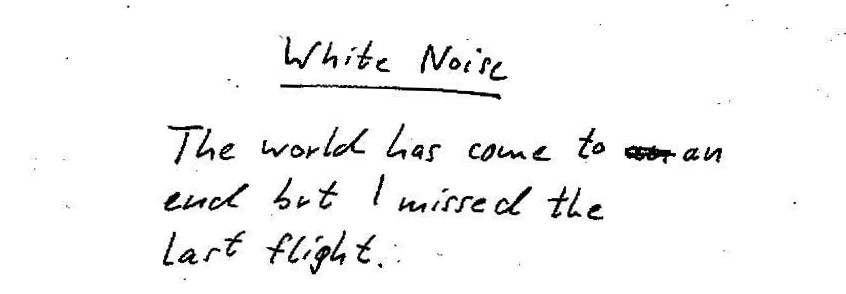 White Noise
The world has come to an
end but I missed the
last flight.